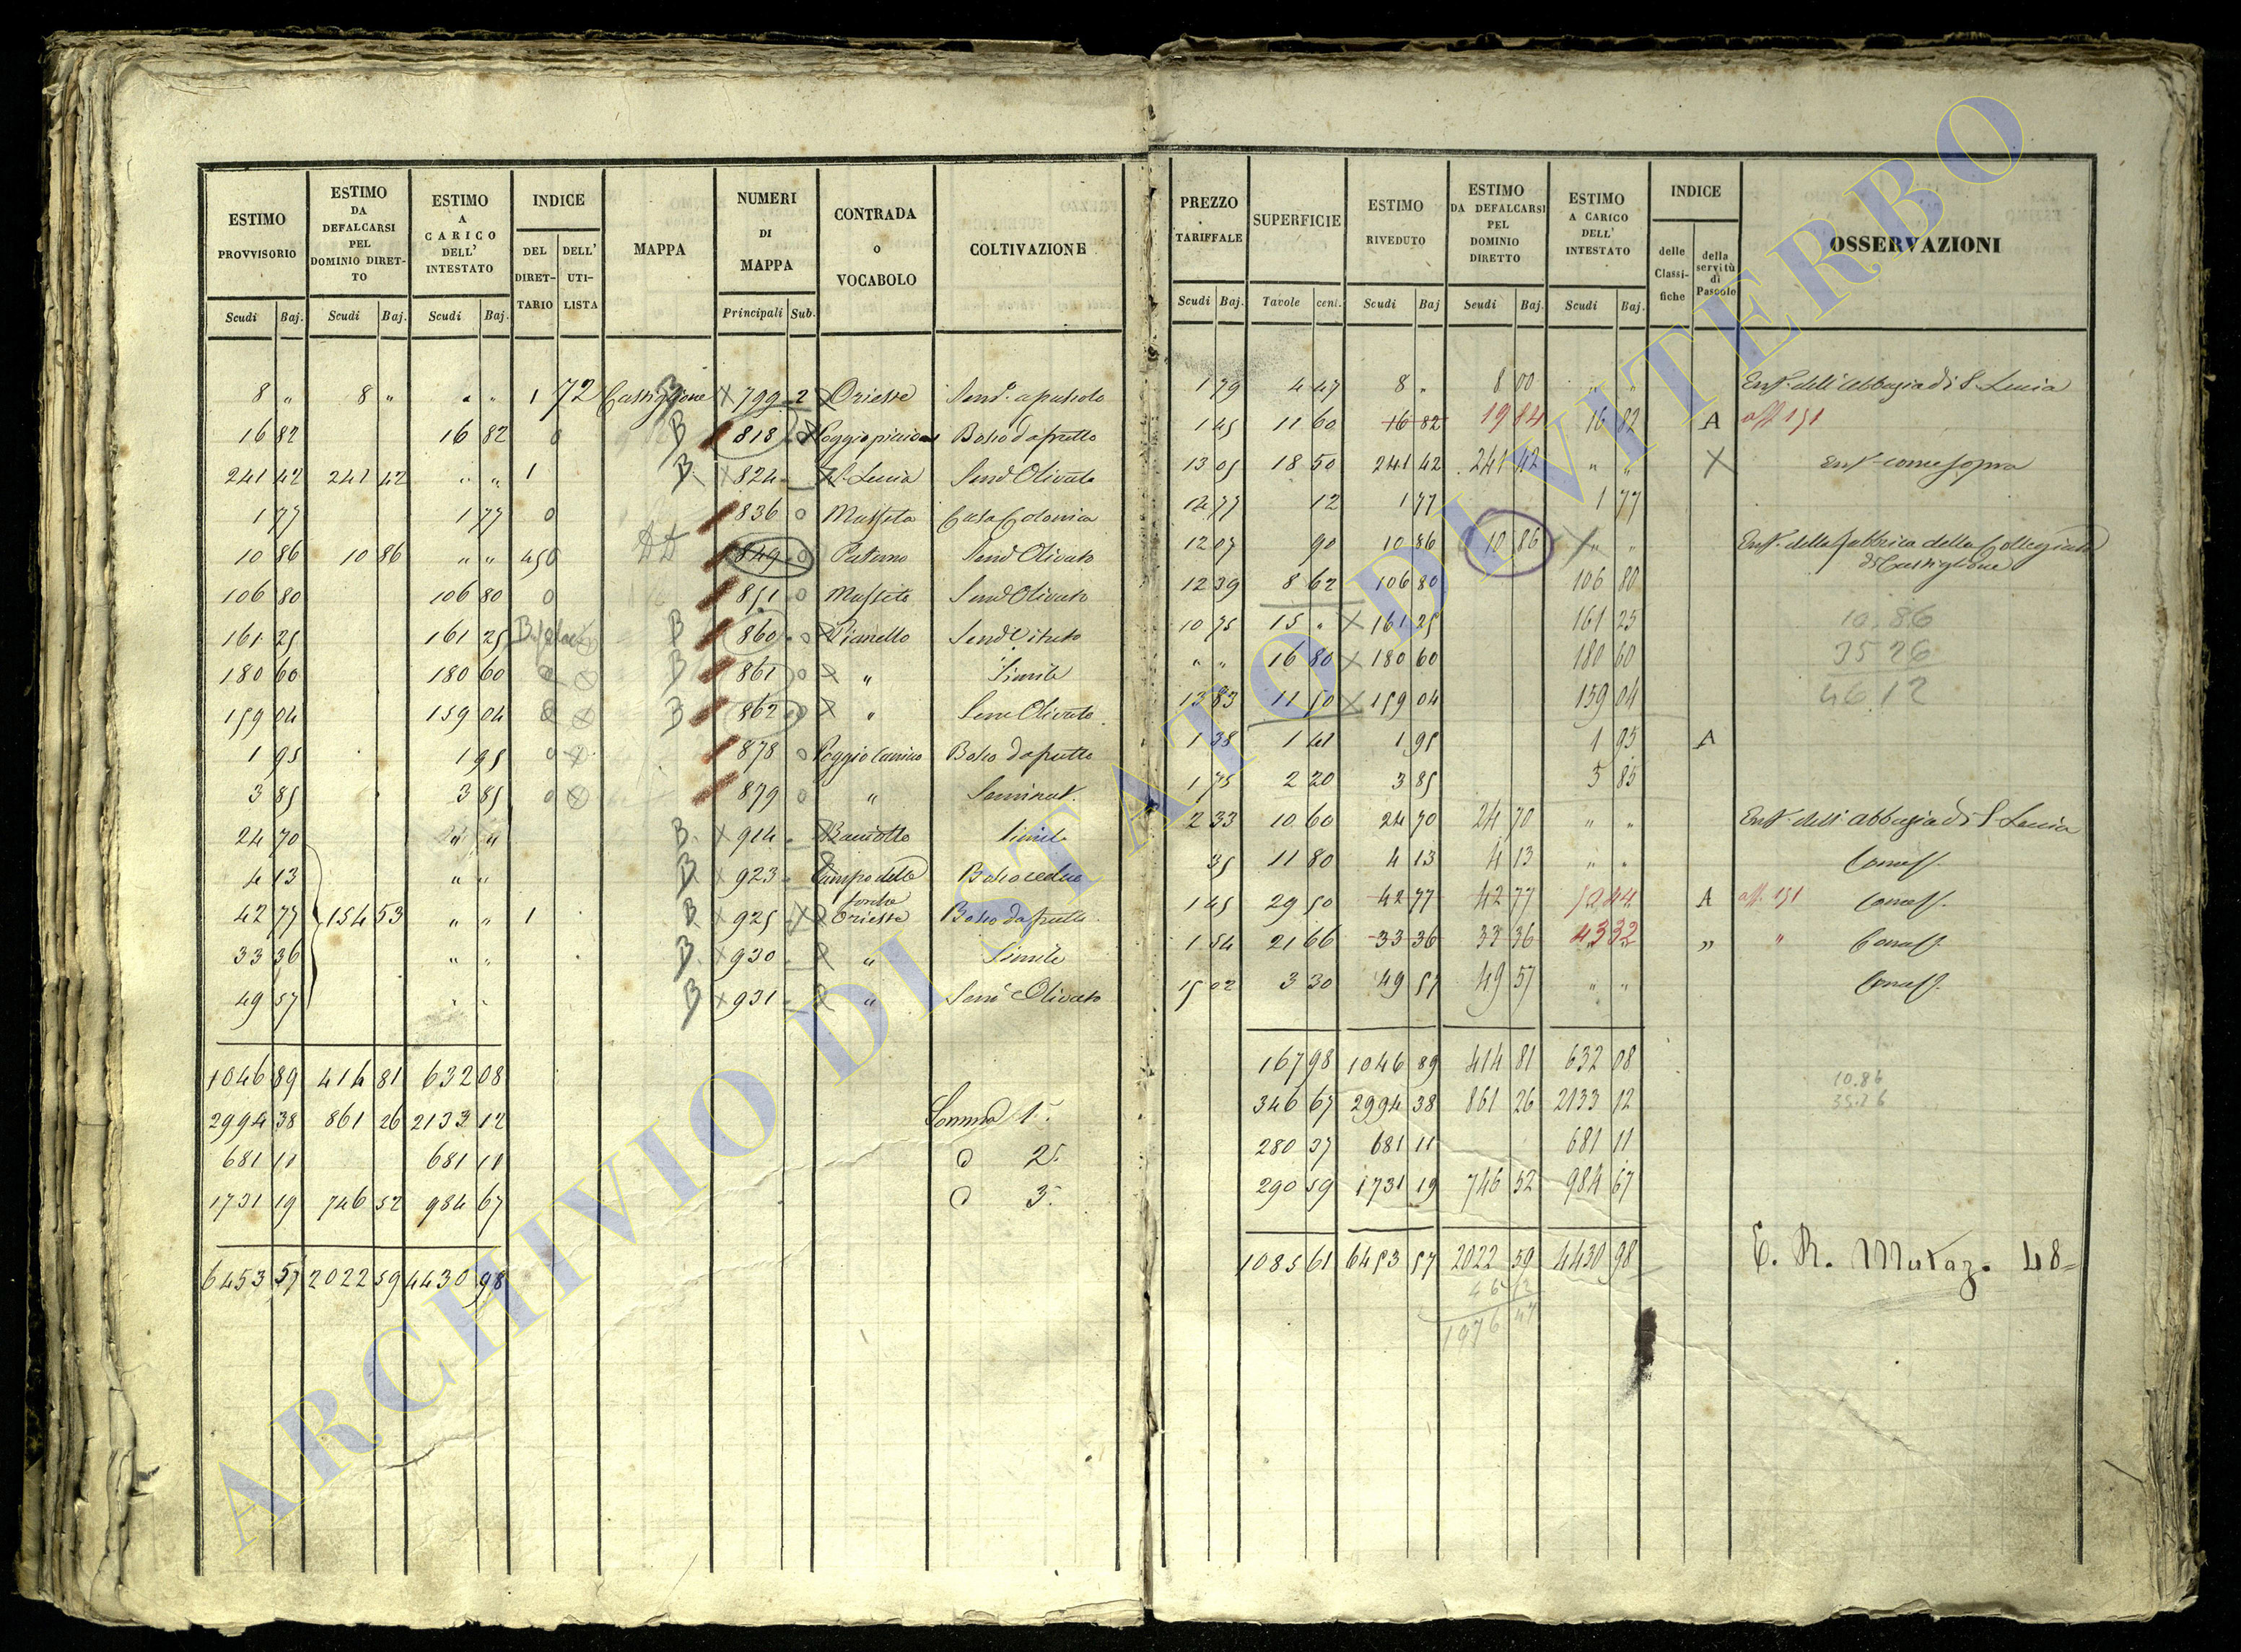 ESTIMO PROVVISORIO | ESTIMO DA DEFALCARSI PEL DOMINIO DIRETTO | ESTIMO A CARICO DELL' INTESTATO | INDICE | MAPPA | NUMERI DI MAPPA | CONTRADA o VOCABOLO | COLTIVAZIONE
DEL DIRETTARIO | DELL' UTILISTA
Scudi | Baj. | Scudi | Baj. | Scudi | Baj. | Principali | Sub.
8 " 8 " " " 1 72 Castiglione B × 799 2 Oriesse
16 82 16 82 0 B 818 Bosco da frutto
241 42 241 42 " " 1 B × 824 S. Lucia Sem.º Olivato
1 77 1 77 0 836 0 Casa Colonica
10 86 10 86 " " 450 AA 849 0 Paterno Sem.º Olivato
106 80 106 80 0 851 0 Sem.º Olivato
161 25 161 25 B 860 0 Pianello Sem.º Vitato
180 60 180 60 B 861 0 " Simile
159 04 159 04 B 862 0 " Sem.º Olivato
1 95 1 95 0 878 0 Bosco da frutto
3 85 3 85 0 879 0 " Seminat.
24 70 " " B. × 914 Simile
4 13 " " B × 923 Campo della Bosco ceduo
42 77 154 53 " " 1 B × 925 Oriesse Bosco da frutto
33 36 " " B. × 930 " Simile
49 57 " " B × 931 " Sem.º Olivato
1046 89 414 81 632 08
2994 38 861 26 2133 12 Somma 1.
681 11 681 11 2.
1731 19 746 52 984 67 3.
6453 57 2022 59 4430 98
PREZZO TARIFFALE | SUPERFICIE | ESTIMO RIVEDUTO | ESTIMO DA DEFALCARSI PEL DOMINIO DIRETTO | ESTIMO A CARICO DELL' INTESTATO | INDICE | OSSERVAZIONI
delle Classifiche | della servitù di Pascolo
Scudi | Baj. | Tavole | cent. | Scudi | Baj | Scudi | Baj. | Scudi | Baj.
1 79 4 47 8 " 8 00 " " Enf. dell'Abbazia di S. Lucia
1 45 11 60 16 82 19 84 16 82 A
13 05 18 50 241 42 241 42 " " × Enf. come sopra
14 77 12 1 77 1 77
12 07 90 10 86 10 86 × " " Enf. della fabbrica della Collegiata
di Castiglione
12 39 8 62 106 80 106 80
10 75 15 " × 161 25 161 25 10.86
" " 16 80 × 180 60 180 60 35 26
13 83 11 50 × 159 04 159 04 46.12
1 38 1 41 1 95 1 95 A
1 75 2 20 3 85 3 85
2 33 10 60 24 70 24 70 " " Enf. dell'abbazia di S. Lucia
35 11 80 4 13 4 13 " "
1 45 29 50 42 77 42 77 50 44 A
1 54 21 66 33 36 33 36 43 32 " "
15 02 3 30 49 57 49 57 " "
167 98 1046 89 414 81 632 08 10.86
346 67 2994 38 861 26 2133 12 35.26
280 37 681 11 681 11
290 59 1731 19 746 52 984 67
1085 61 6453 57 2022 59 4430 98 E. R. Mutaz. 48
46 12
1976 47
ARCHIVIO DI STATO DI VITERBO